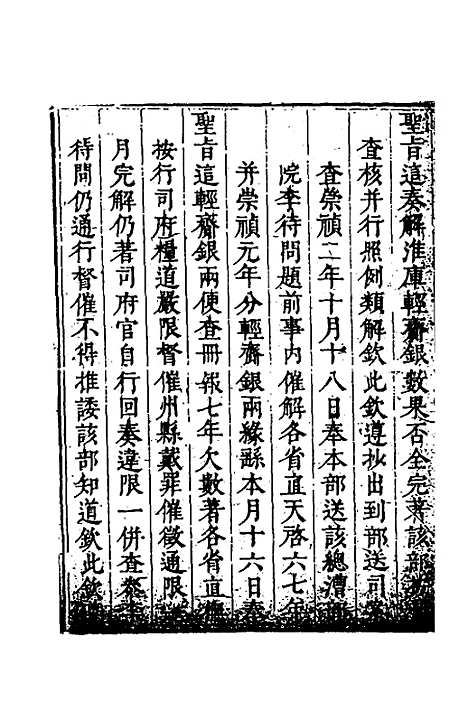 聖旨這奏解淮庫輕齎銀數果否全完著該部
查核并行照例類解欽此欽遵抄出到部送司
查崇禎二年十月十八日奉本部送該總漕
院李待問題前事內催解各省直天啓六七年
并崇禎元年分輕齎銀兩緣繇本月十六日奉
聖旨這輕齎銀兩便查冊報七年欠數著各省直撫
按行司府糧道嚴限督催州縣戴罪催徵通限
月完解仍著司府官自行回奏違限一併查參李
待問仍通行督催不得推諉該部知道欽此欽